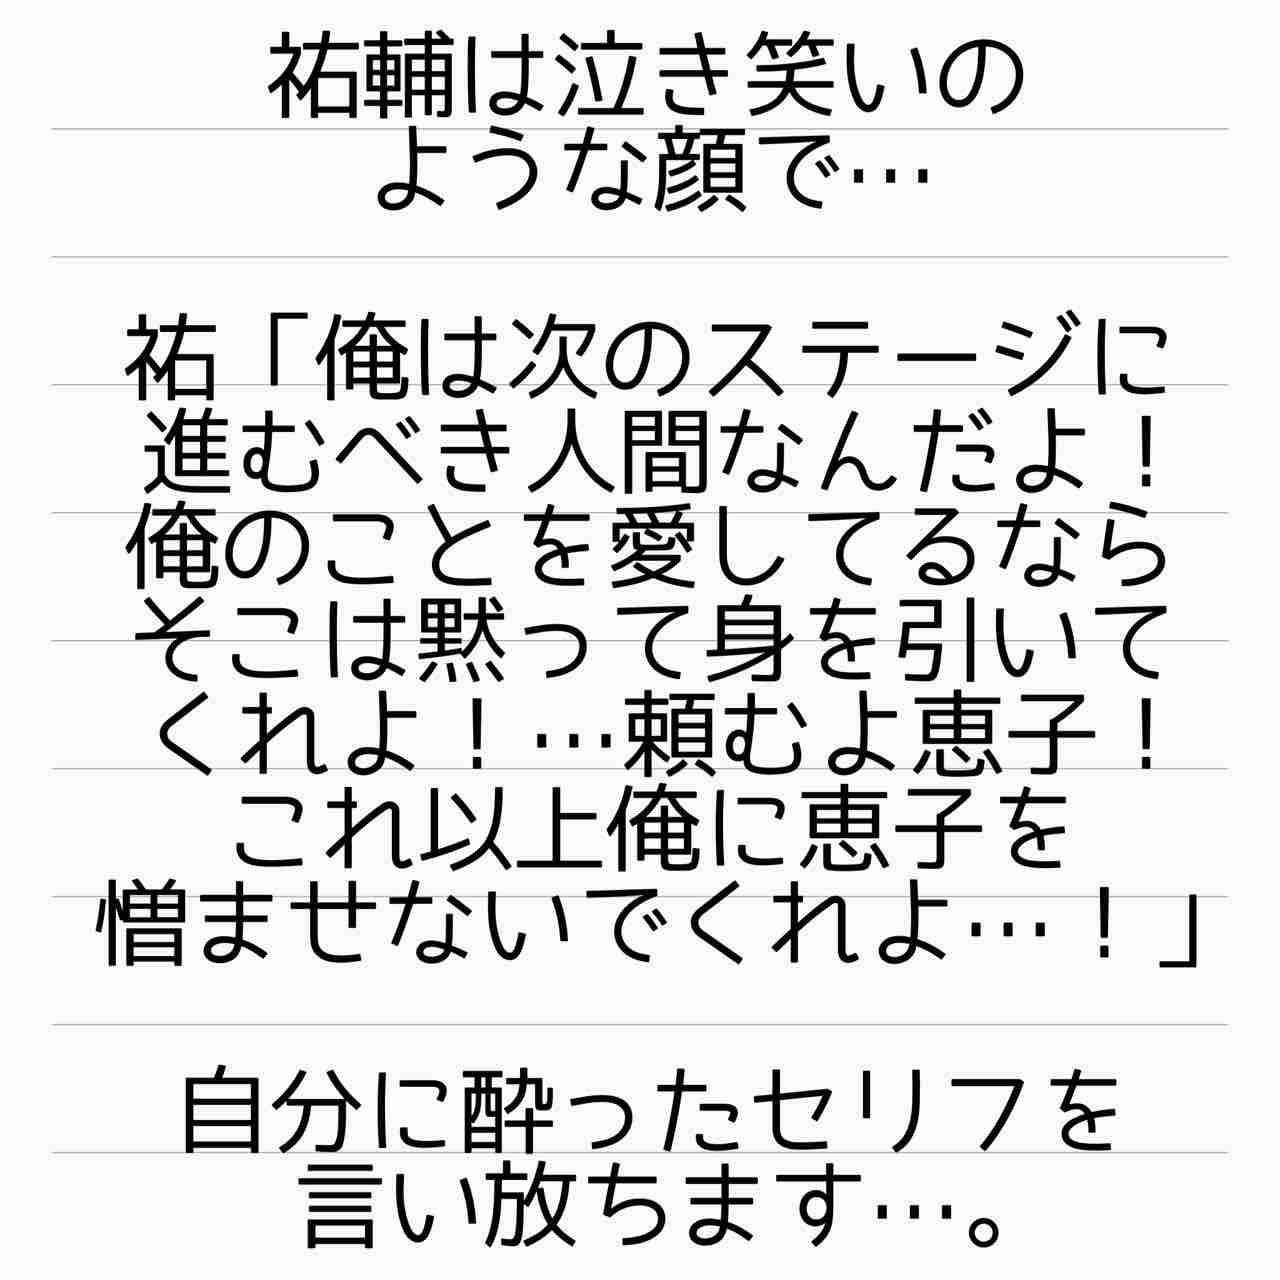 祐輔は泣き笑いの
ような顔で…
祐「俺は次のステージに
進むべき人間なんだよ！
俺のことを愛してるなら
そこは黙って身を引いて
くれよ！…頼むよ恵子！
これ以上俺に恵子を
憎ませないでくれよ…！」
自分に酔ったセリフを
言い放ちます…。